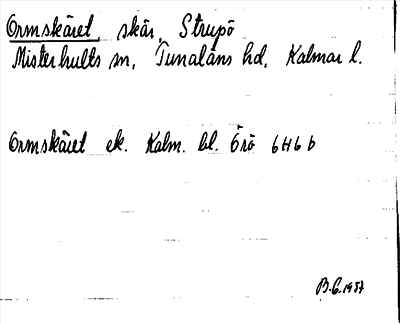 Ormskäret, skär, Strupö
Misterhults sn, Tunaläns hd, Kalmar l.
Ormskäret ek. Kalm. bl. Örö 6H6b
B.E.1957